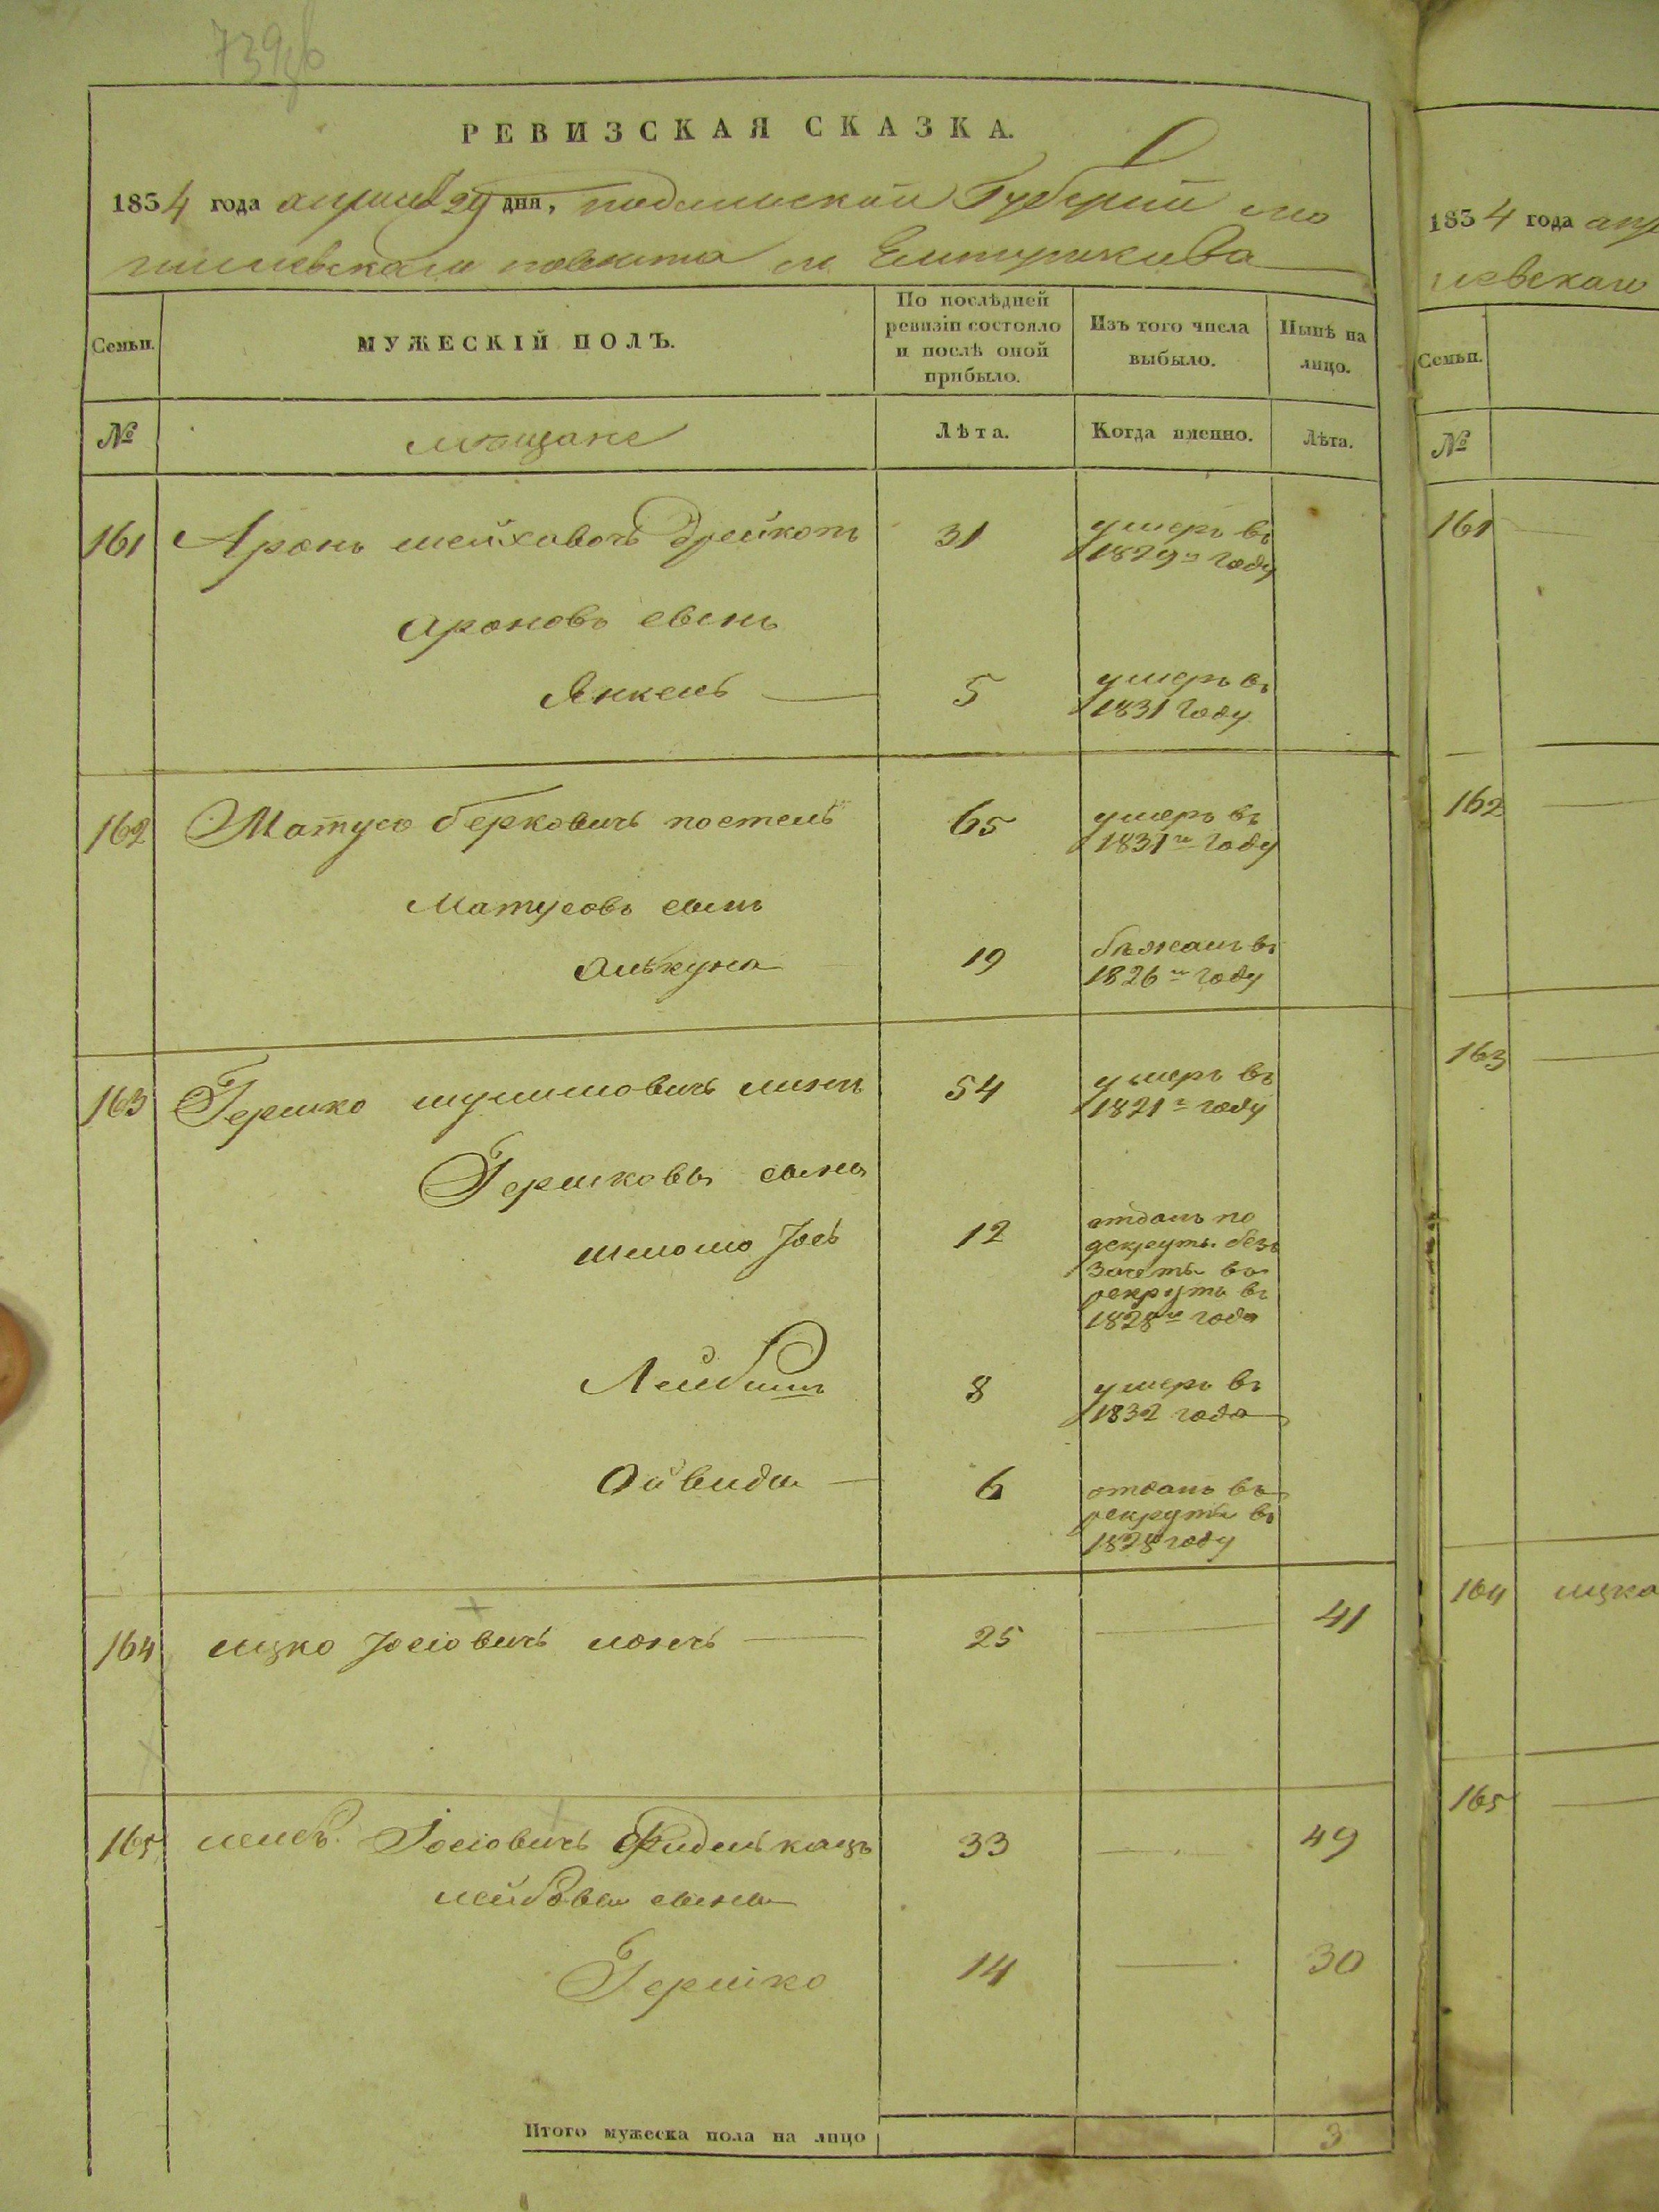 739
РЕВИЗСКАЯ СКАЗКА.
1834 года апреля 29 дня, подольской Губернии мо
гилевского повета м Ялтушкова
Семьи.
МУЖЕСКІЙ ПОЛЪ.
По послѣдней
ревизіи состояло
и послѣ оной
прибыло.
Изъ того числа
выбыло.
Нынѣ на
лицо.
№
мещане
Лѣта.
Когда именно.
Лѣта.
161 Аронъ 31 умеръ въ
1829го году
Ароновъ сынъ
Янкель 5 умеръ въ
1831 году
162 Матусъ берковичъ постель 65 умеръ въ
1831го году
Матусовъ сынъ
Элькуна 19 бѣжалъ въ
1826го году
163 Гершко шулимовичъ 54 умеръ въ
1821го году
Гершковы сыны
шлiома Іось 12 отданъ по
декрету безъ
зачета въ
рекруты въ
1828го года
Лейбишъ 8 умеръ въ
1832 года
6 отданъ въ
рекруты въ
1828 году
164 ицко Јосіовичъ 25 41
165 лейбъ Іосіовичъ 33 49
лейбовы сыны
Гершко 14 30
Итого мужеска пола на лицо 3
1834 года апр
левскаго
Семьи.
№
161
162
163
164 ицка
165